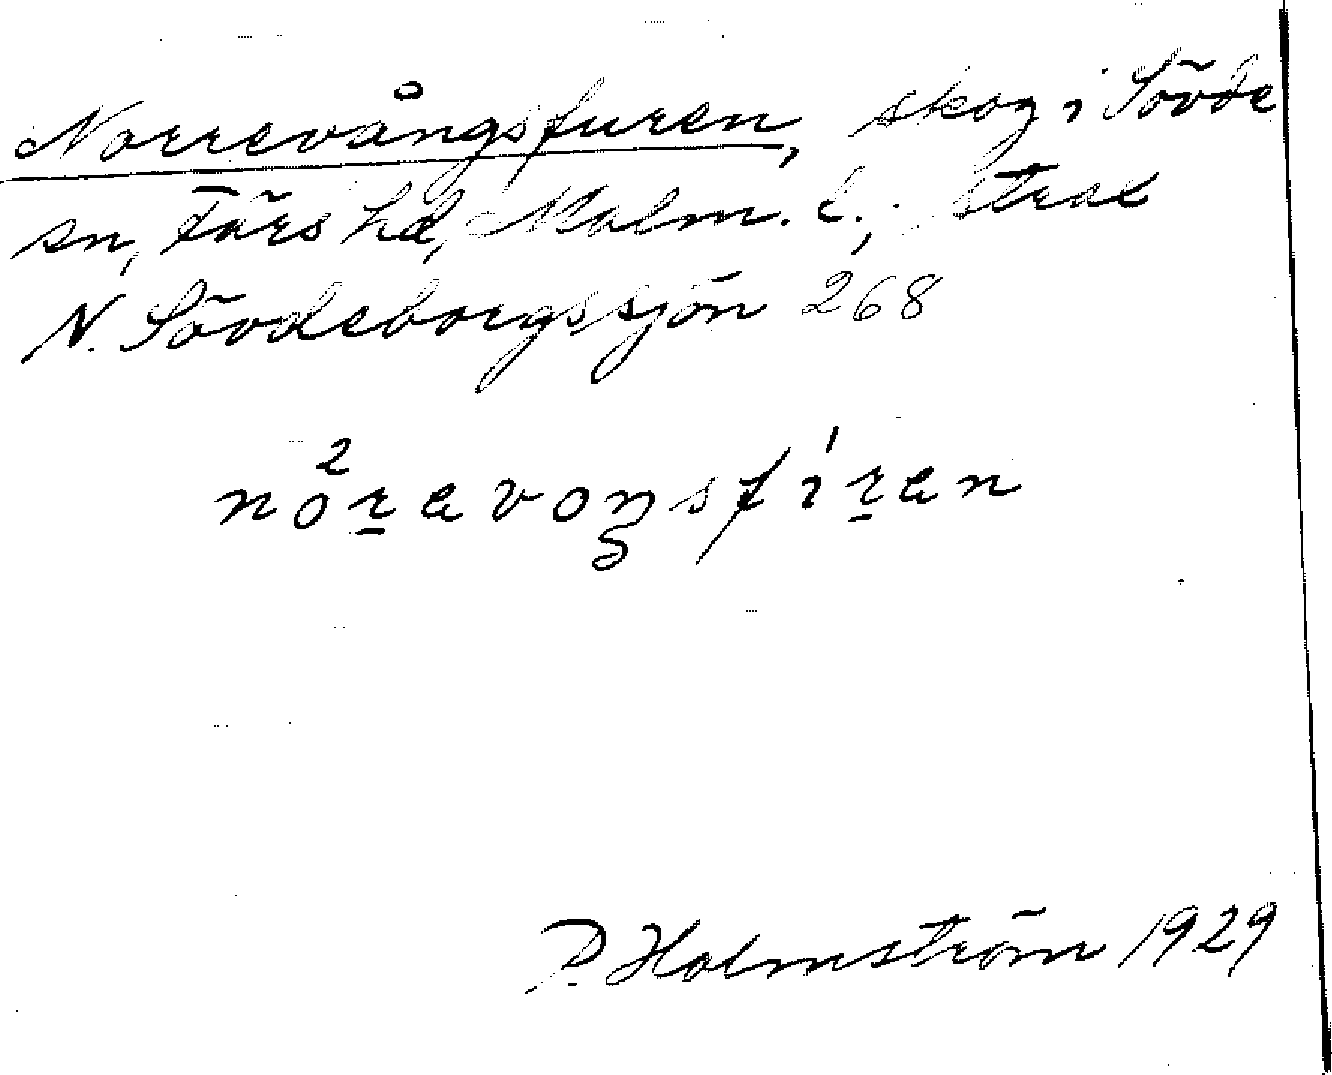 Norrevångsfuren, skog i Sövde
sn, Färs hd, Malm. l.; strax
N. Sövdeborgssjön 268
2
nóṟavoŋsfíṟan
P. Holmström 1929